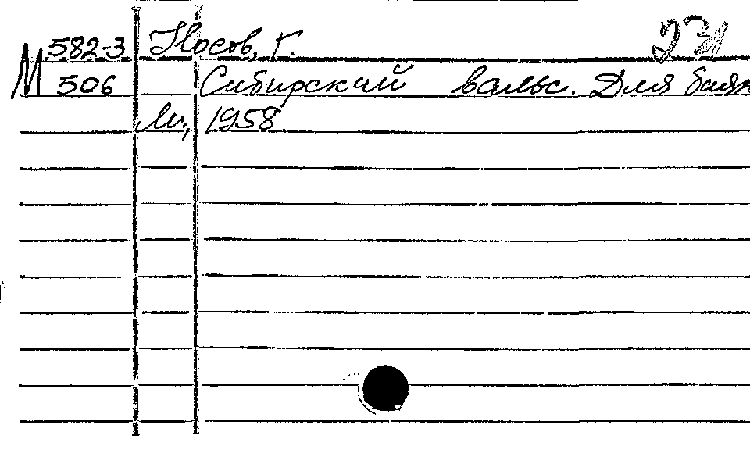 М 582-3 Носов, Г.
506 Сибирский вальс. Для баян
М., 1958